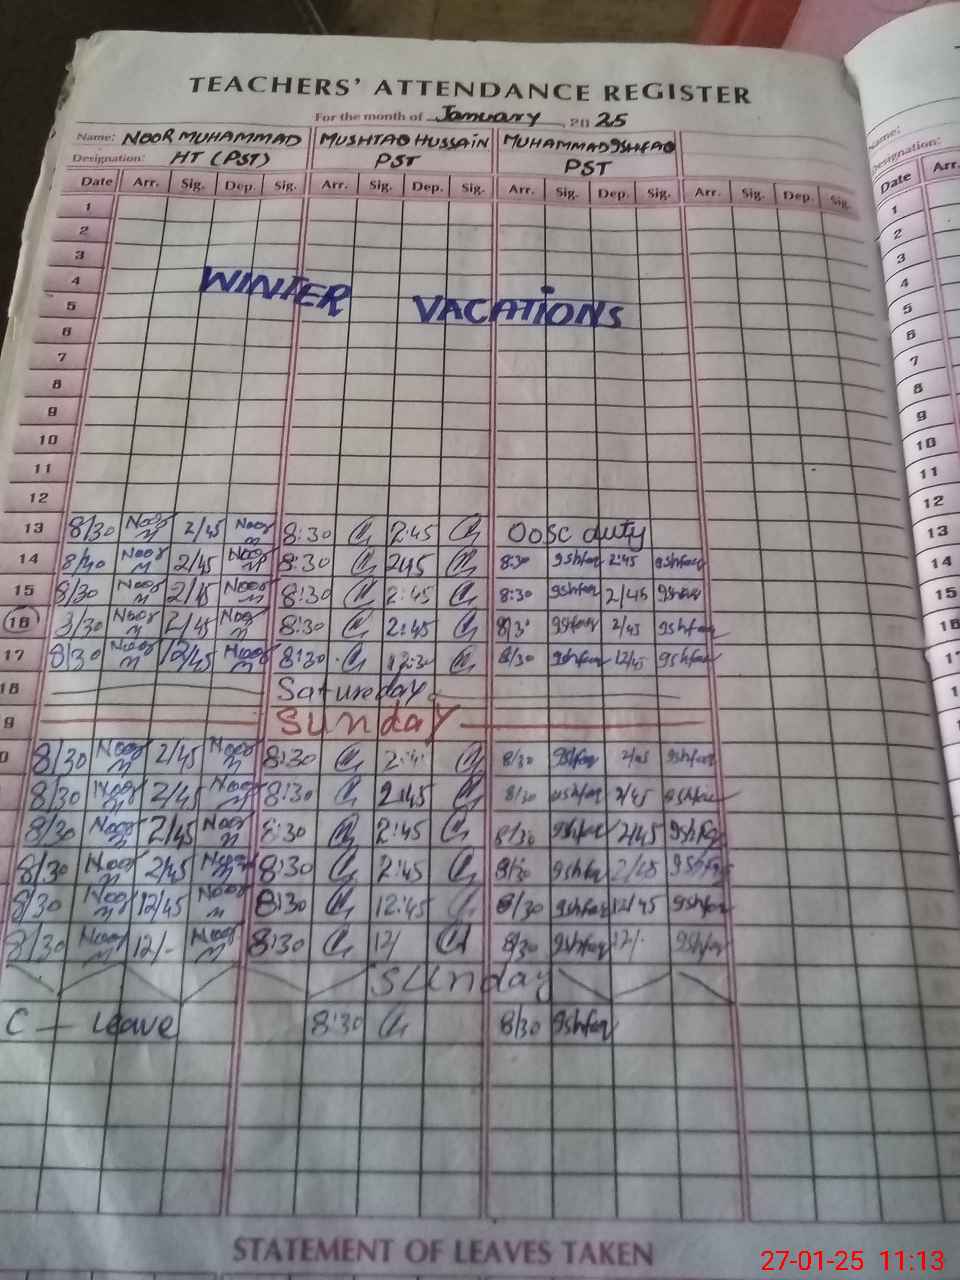 TEACHERS' ATTENDANCE REGISTER
For the month of January, 2025
Name: NOOR MUHAMMAD MUSHTAQ HUSSAIN MUHAMMAD ISHFAQ
Designation: HT (PST) PST PST
Date Arr. Sig. Dep. Sig. Arr. Sig. Dep. Sig. Arr. Sig. Dep. Sig. Arr. Sig. Dep. Sig.
1
2
3
4
WINTER VACATIONS
5
6
7
8
9
10
11
12
13 8/30 Noor M 2/45 Noor M 8:30 2:45 OOSC duty
14 Noor M 2/45 Noor M 8:30 245 8:30 Ishfaq 2:45 Ishfaq
15 8/30 Noor M 2/45 Noor M 8:30 2:45 8:30 Ishfaq 2/45 Ishfaq
16 Noor M 2/45 Noor M 8:30 2:45 Ishfaq 2/45 Ishfaq
17 8/30 Noor M 12/45 Noor M 8:30 12:30 8/30 Ishfaq 12/45 Ishfaq
18 Satureday
9 Sunday
0 8/30 Noor M 2/45 Noor M 8:30 8/30 Ishfaq 2/45 Ishfaq
8/30 Noor M 2/45 Noor M 8:30 2:45 8/30 Ishfaq 2/45 Ishfaq
8/30 Noor M 2/45 Noor M 8:30 2:45 8/30 Ishfaq 2/45 Ishfaq
8/30 Noor M 2/45 Noor M 8:30 2:45 8/30 Ishfaq 2/45 Ishfaq
8/30 Noor M 12/45 Noor M 8:30 12:45 8/30 Ishfaq 12/45 Ishfaq
8/30 Noor M 12/- Noor M 8:30 12/ 8/30 Ishfaq 12/- Ishfaq
Sunday
C — Leave 8:30 8/30 Ishfaq
STATEMENT OF LEAVES TAKEN
Name:
Designation:
Date Arr.
1
2
3
4
5
6
7
8
9
10
11
12
13
14
15
16
1
27-01-25 11:13